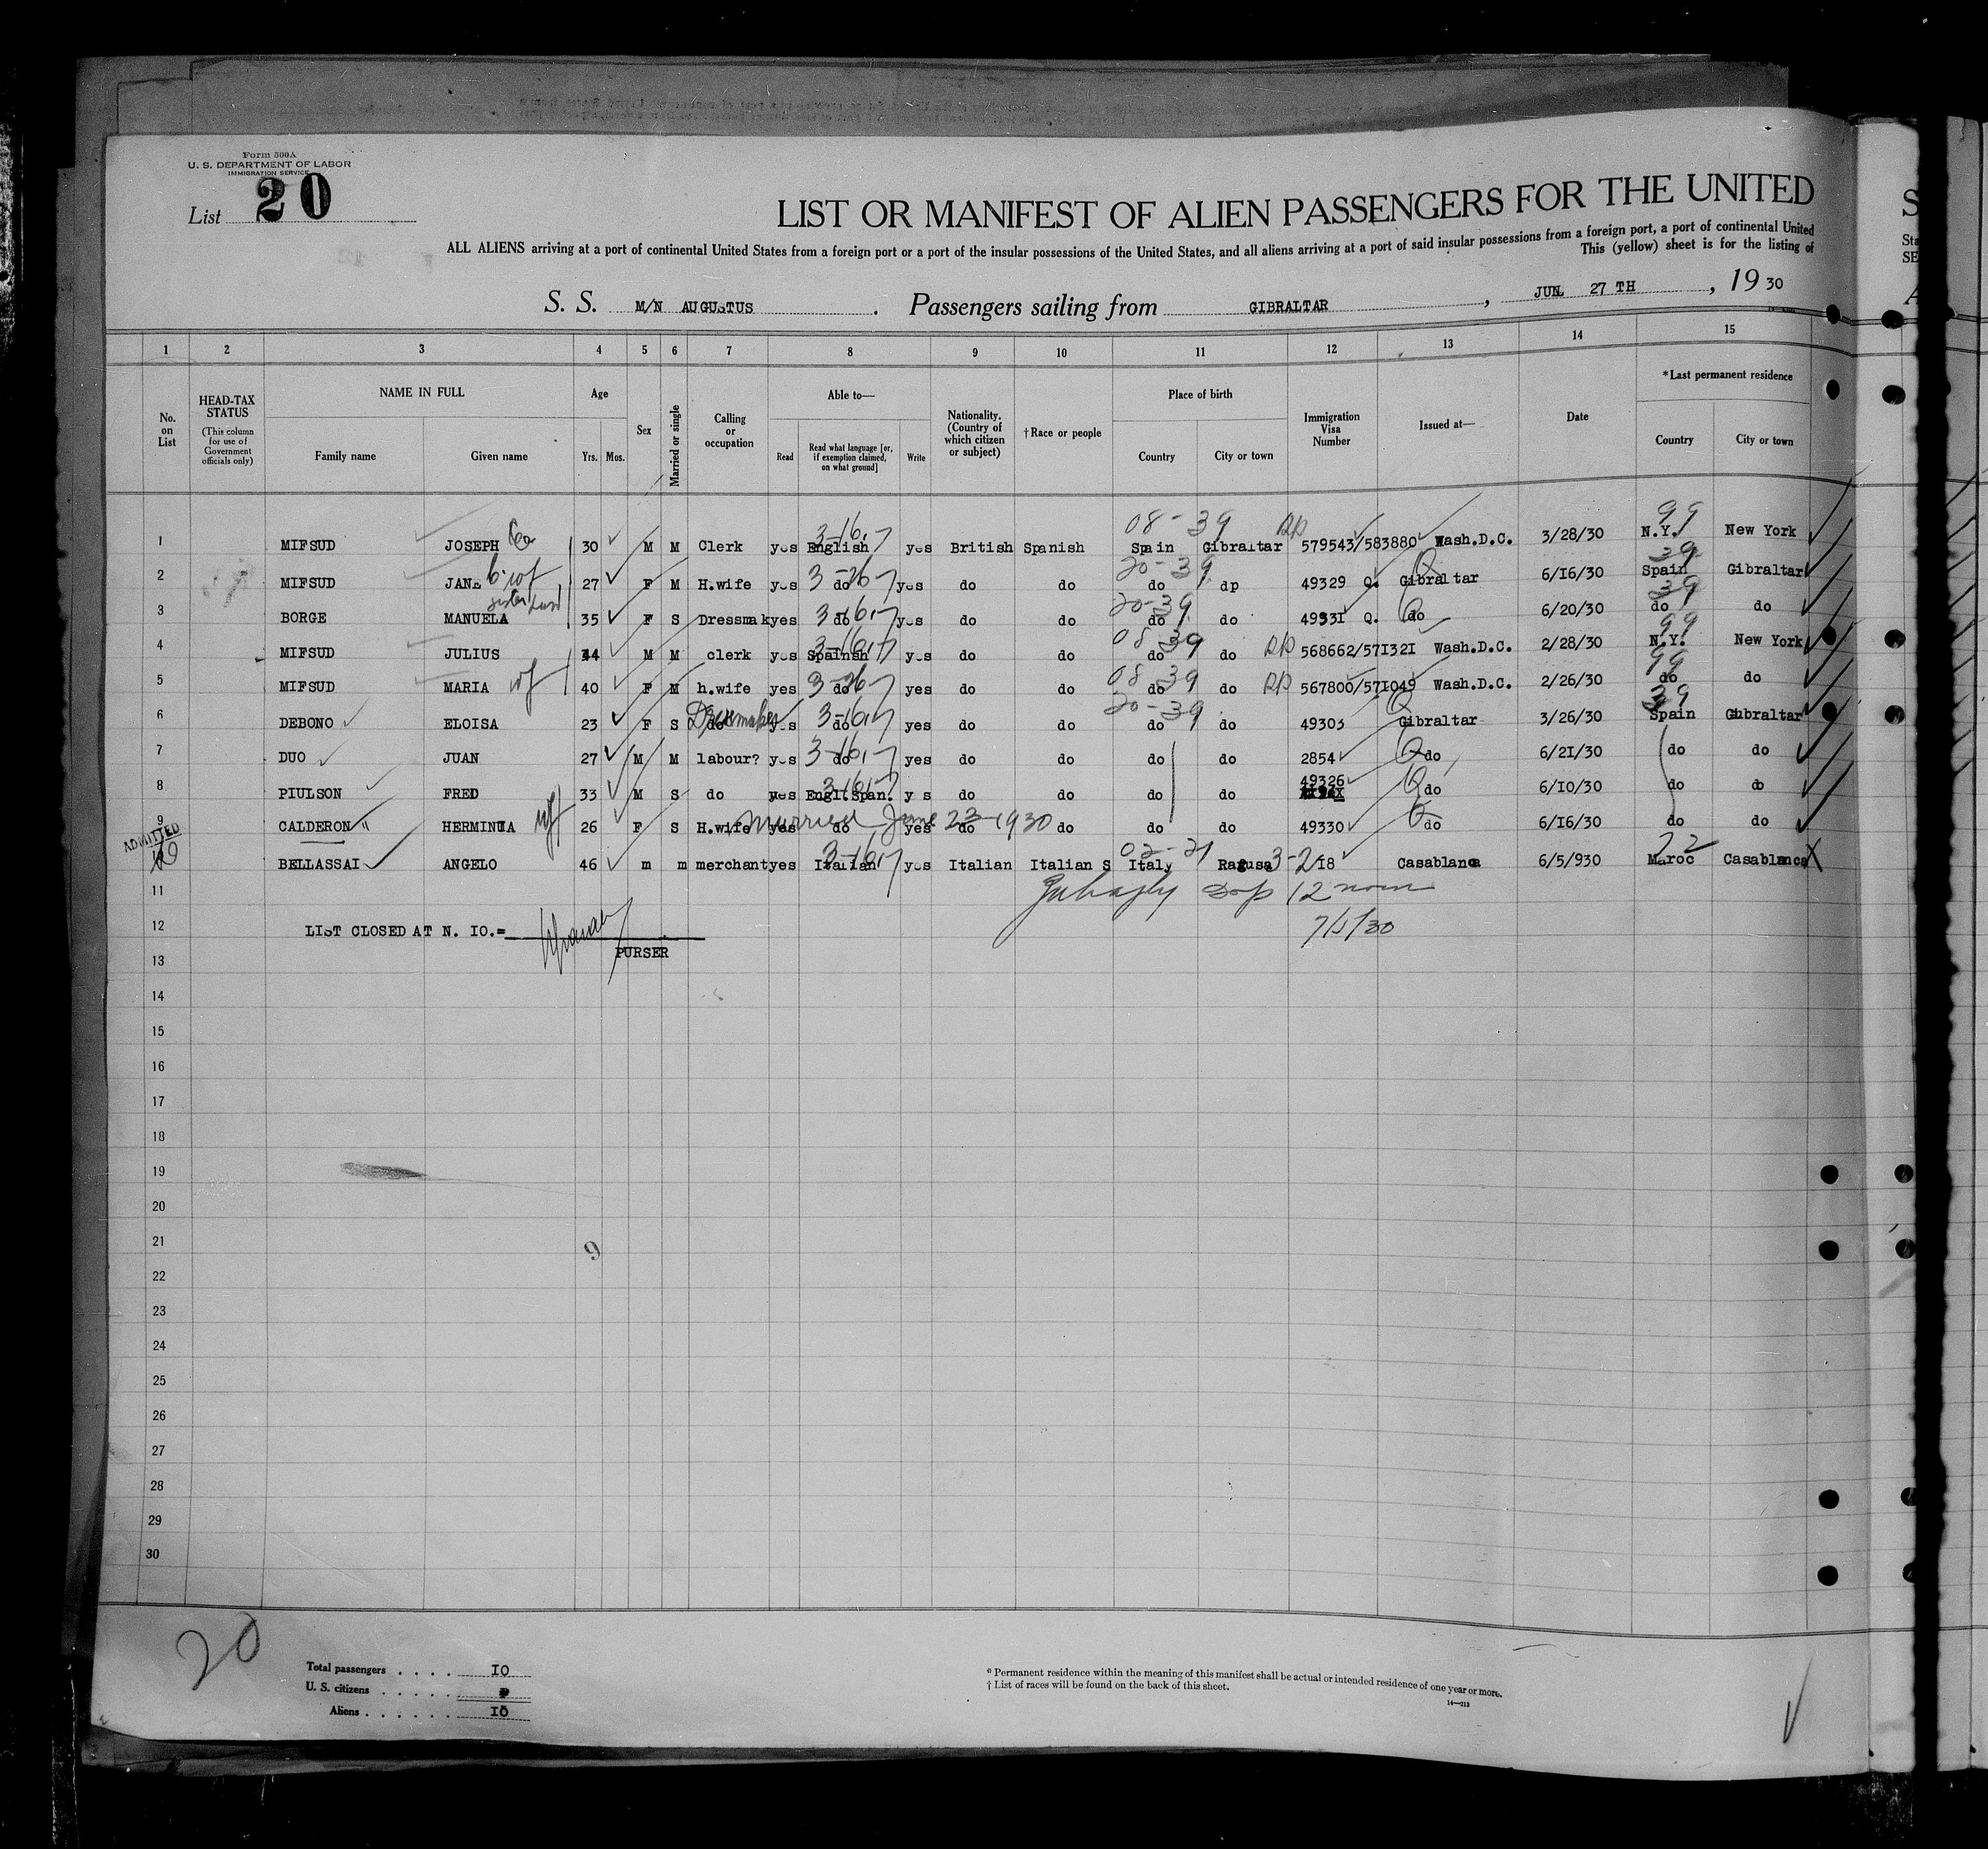 Form 500A
U. S. DEPARTMENT OF LABOR
IMMIGRATION SERVICE
List 20
LIST OR MANIFEST OF ALIEN PASSENGERS FOR THE UNITED
ALL ALIENS arriving at a port of continental United States from a foreign port or a port of the insular possessions of the United States, and all aliens arriving at a port of said insular possessions from a foreign port, a port of continental United
This (yellow) sheet is for the listing of
S. S. M/N AUGUSTUS . Passengers sailing from GIBRALTAR , JUN. 27 TH , 19 30
1 2 3 4 5 6 7 8 9 10 11 12 13 14 15
No. on List
HEAD-TAX STATUS (This column for use of Government officials only)
NAME IN FULL Family name Given name
Age Yrs. Mos.
Sex
Married or single
Calling or occupation
Able to— Read Read what language [or, if exemption claimed, on what ground] Write
Nationality. (Country of which citizen or subject)
†Race or people
Place of birth Country City or town
Immigration Visa Number
Issued at—
Date
*Last permanent residence Country City or town
08-39 99
1 MIFSUD JOSEPH 30 M M Clerk yes English yes British Spanish Spain Gibraltar 579543/583880 Wash.D.C. 3/28/30 N.Y. New York
20-39 39
2 MIFSUD JANE 27 F M H.wife yes do yes do do do dp 49329 Q. Gibraltar 6/I6/30 Spain Gibraltar
20-39 39
3 BORGE MANUELA 35 F S Dressmak yes do yes do do do do 4933I Q. do 6/20/30 do do
08 39 99
4 MIFSUD JULIUS 44 M M clerk yes Spainsh yes do do do do 568662/57I32I Wash.D.C. 2/28/30 N.Y. New York
08 39 99
5 MIFSUD MARIA wf 40 F M h.wife yes do yes do do do do 567800/57I049 Wash.D.C. 2/26/30 do do
20-39 39
6 DEBONO ELOISA 23 F S do Dressmaker yes do yes do do do do 49303 Gibraltar 3/26/30 Spain Gibraltar
7 DUO JUAN 27 M M labour? yes do yes do do do do 2854 do 6/2I/30 do do
8 PIULSON FRED 33 M S do yes Engl.Span. y s do do do do 49326 do 6/I0/30 do do
9 CALDERON " HERMINIA wf 26 F S H.wife yes do yes do do do do 49330 do 6/I6/30 do do
Married June 23-1930
ADMITTED
10 BELLASSAI ANGELO 46 m m merchant yes Italian yes Italian Italian S Italy Ragusa 3-2 I8 Casablanca 6/5/930 Maroc Casablanca
11
12 noon
12 LIST CLOSED AT N. IO.=
7/5/30
13 PURSER
14
15
16
17
18
19
20
21
9
22
23
24
25
26
27
28
29
30
20
Total passengers . . . . IO
U. S. citizens . . . . .
Aliens . . . . . . I0
* Permanent residence within the meaning of this manifest shall be actual or intended residence of one year or more.
† List of races will be found on the back of this sheet.
14—213